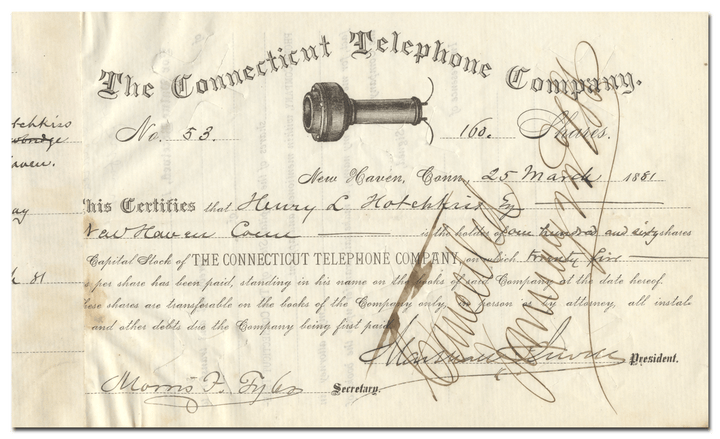 The Connecticut Telephone Company.
No. 53. 160. Shares.
New Haven, Conn. 25 March 1881
This Certifies that Henry L Hotchkiss Esq
New Haven Conn is the holder of one hundred and sixty shares
Capital Stock of THE CONNECTICUT TELEPHONE COMPANY, on which twenty five
s per share has been paid, standing in his name on the books of said Company at the date hereof.
hese shares are transferable on the books of the Company only, in person or by attorney, all instal
and other debts due the Company being first paid
President.
Morris F. Tyler Secretary.
Cancelled
tchkiss
aven.
ay
h 81